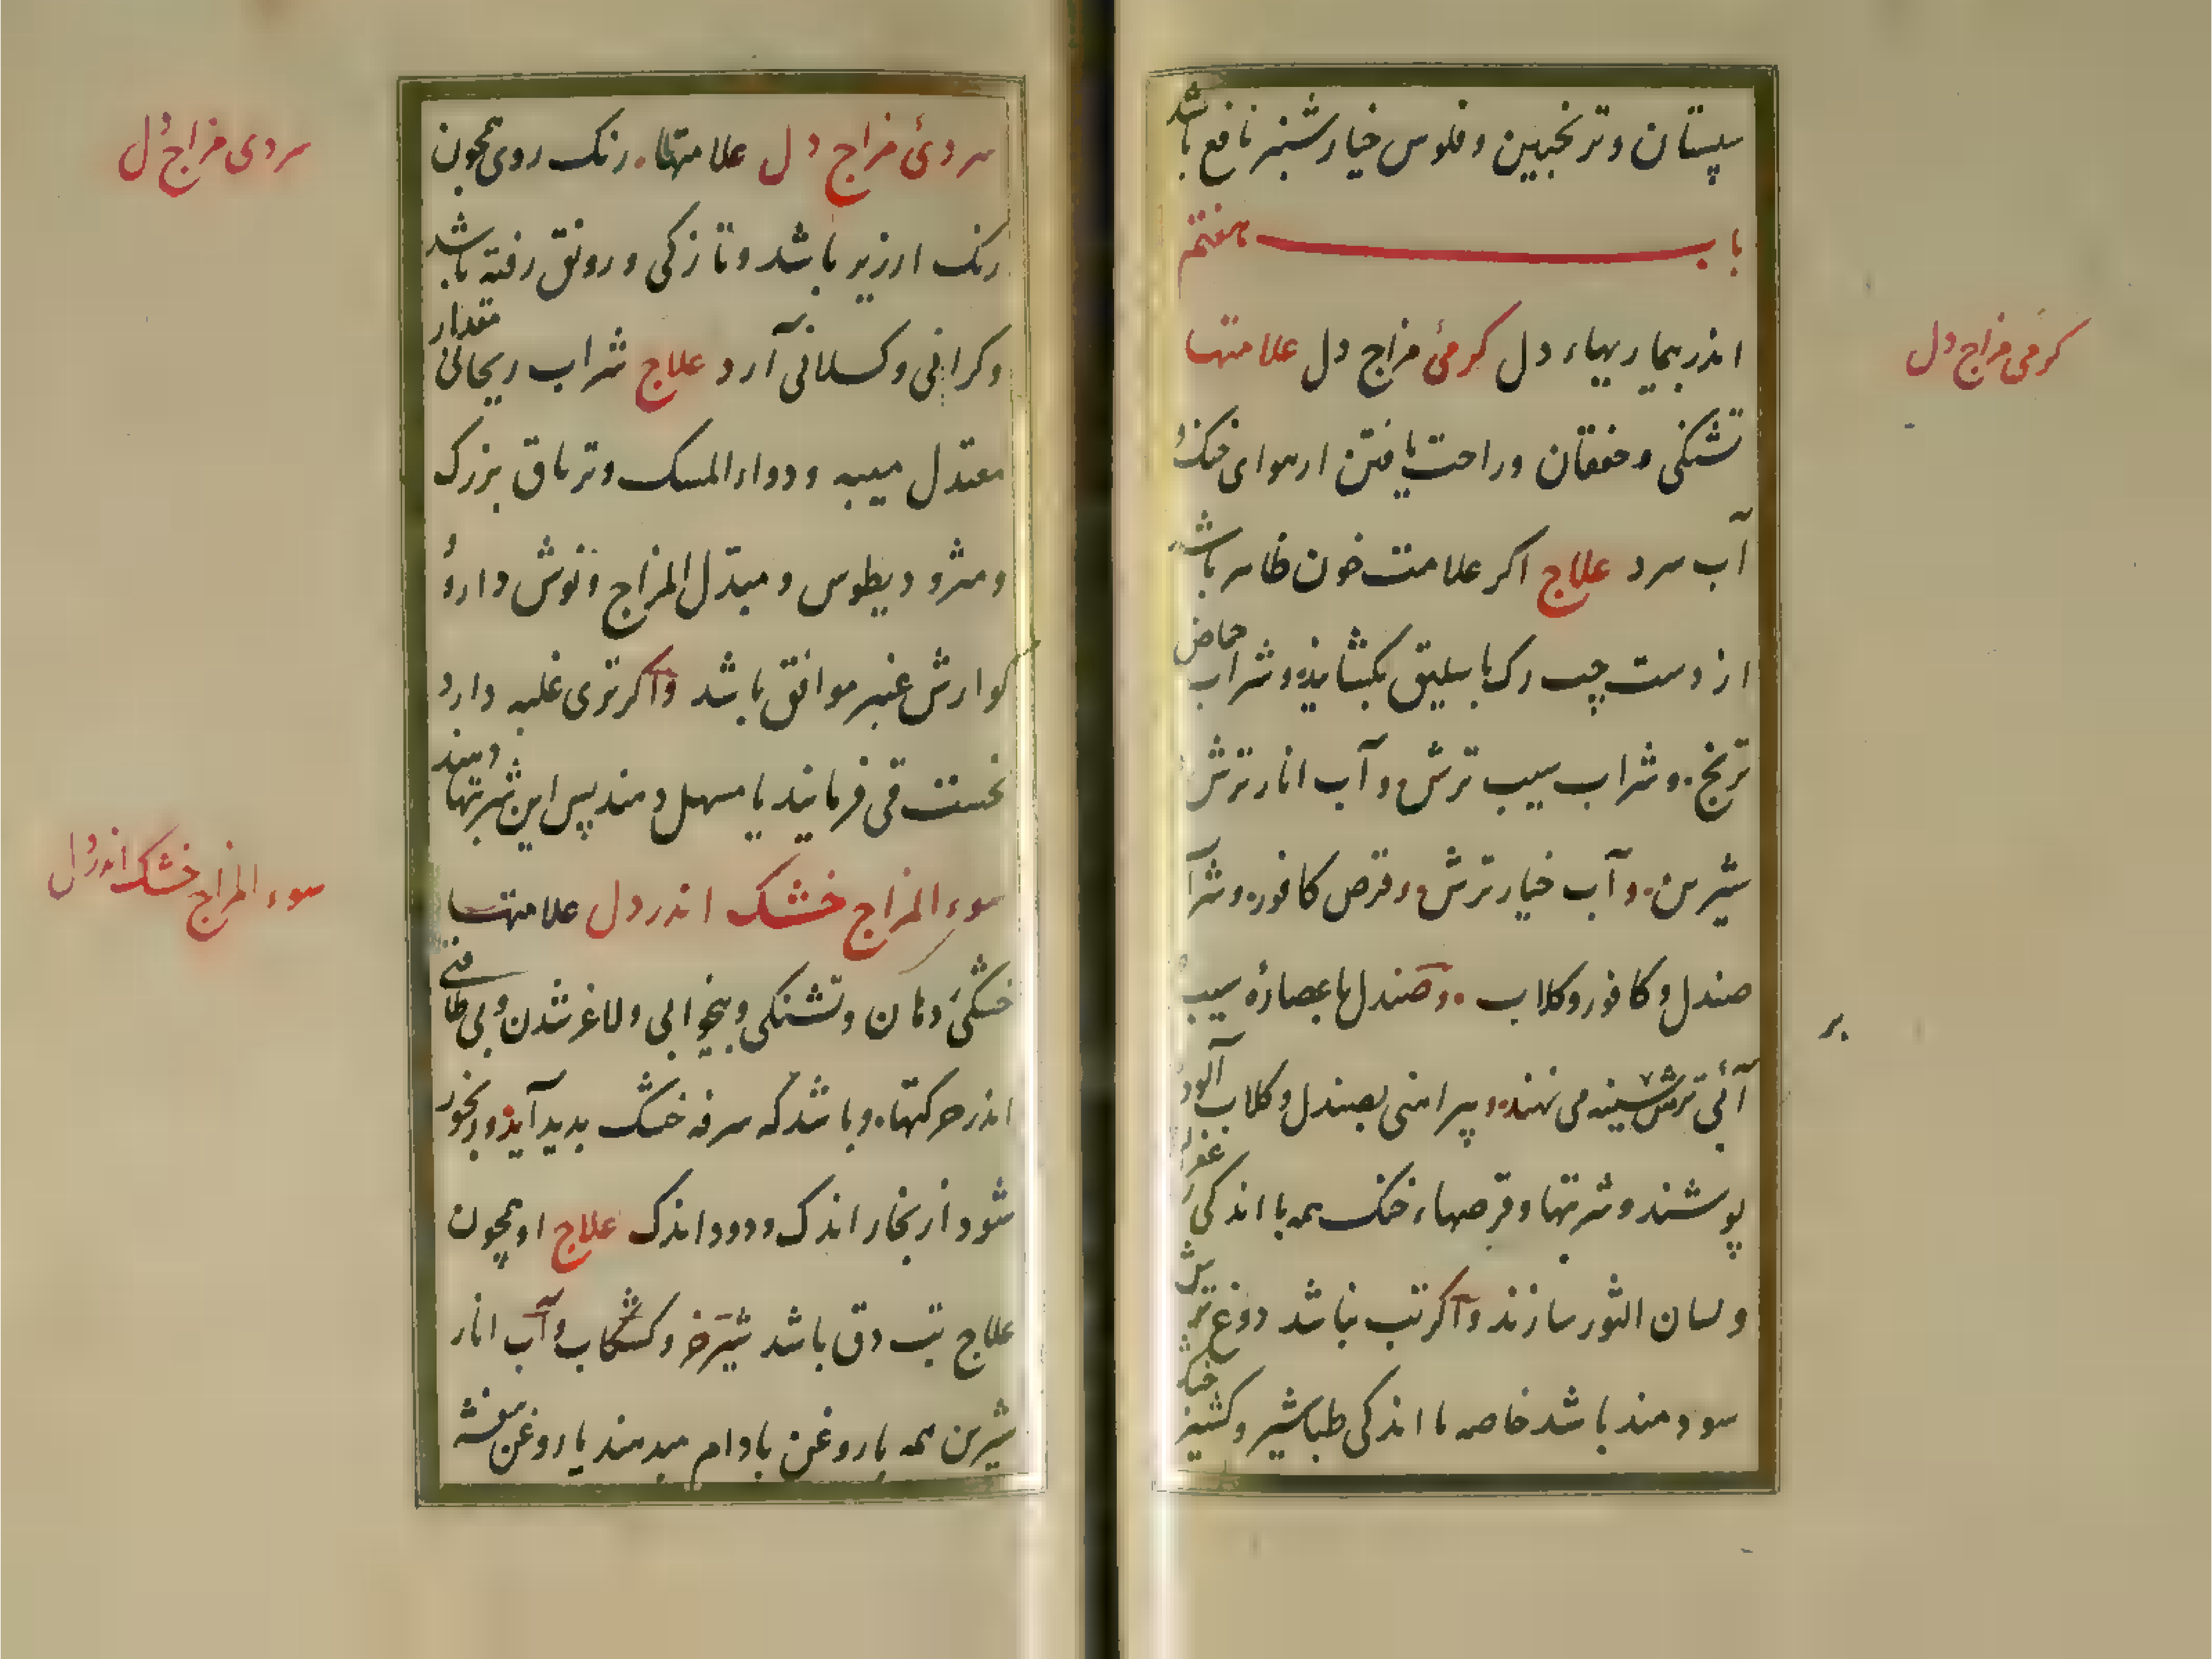 سپستان و ترنجبین و فلوس خیارشنبر نافع باشد
باب هفتم
اندر بیماریهاء دل کرمیٔ مزاج دل علامتها
کرمی مزاج دل
تشنکی و خفقان و راحت یافتن از هوای خنک و
آب سرد علاج اکر علامت خون ظاهر باشد
از دست چپ رک باسلیق بکشایند و شراب حماض
ترنج و شراب سیب ترش و آب انار ترش و
شیرین و آب خیار ترش و قرص کافور و شراب
صندل و کافور و کلاب و صندل با عصارهٔ سیب و
آبی ترش بر سینه می نهند و پیراهنی بصندل و کلاب آلوده
پوشند و شربتها و قرصهاء خنک همه با اندکی زعفران
و لسان الثور سازند و اکر تب نباشد دوغ ترش
سودمند باشد خاصه با اندکی طباشیر و کشنیز خشک
سردیٔ مزاج دل علامتها رنک روی همچون
سردی مزاج دل
رنک ارزیز باشد و تازکی و رونق رفته باشد
و کرانی و کسلانی آرد علاج شراب ریحانی مقدار
معتدل میبه و دواء المسک و تریاق بزرک
و مثرودیطوس و مبدل المزاج و نوش دارو و
کوارش عنبر موافق باشد و اکر تری غلبه دارد
نخست قی فرمایند یا مسهل دهند پس این شربتها دهند
سوء المزاج خشک اندر دل علامتها
سوء المزاج خشک اندر دل
خشکی دهان و تشنکی و بیخوابی و لاغر شدن و بی طاقتی
اندر حرکتها و باشد که سرفه خشک بدید آید و رنجور
شود از بخار اندک و دود اندک علاج او همچون
علاج تب دق باشد شیر خر و کشکاب و آب انار
شیرین همه با روغن بادام میدهند یا روغن بنفشه